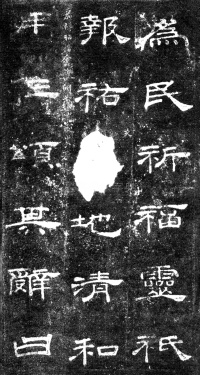 為民祈福靈祇
報祐地清和
頌其辭曰